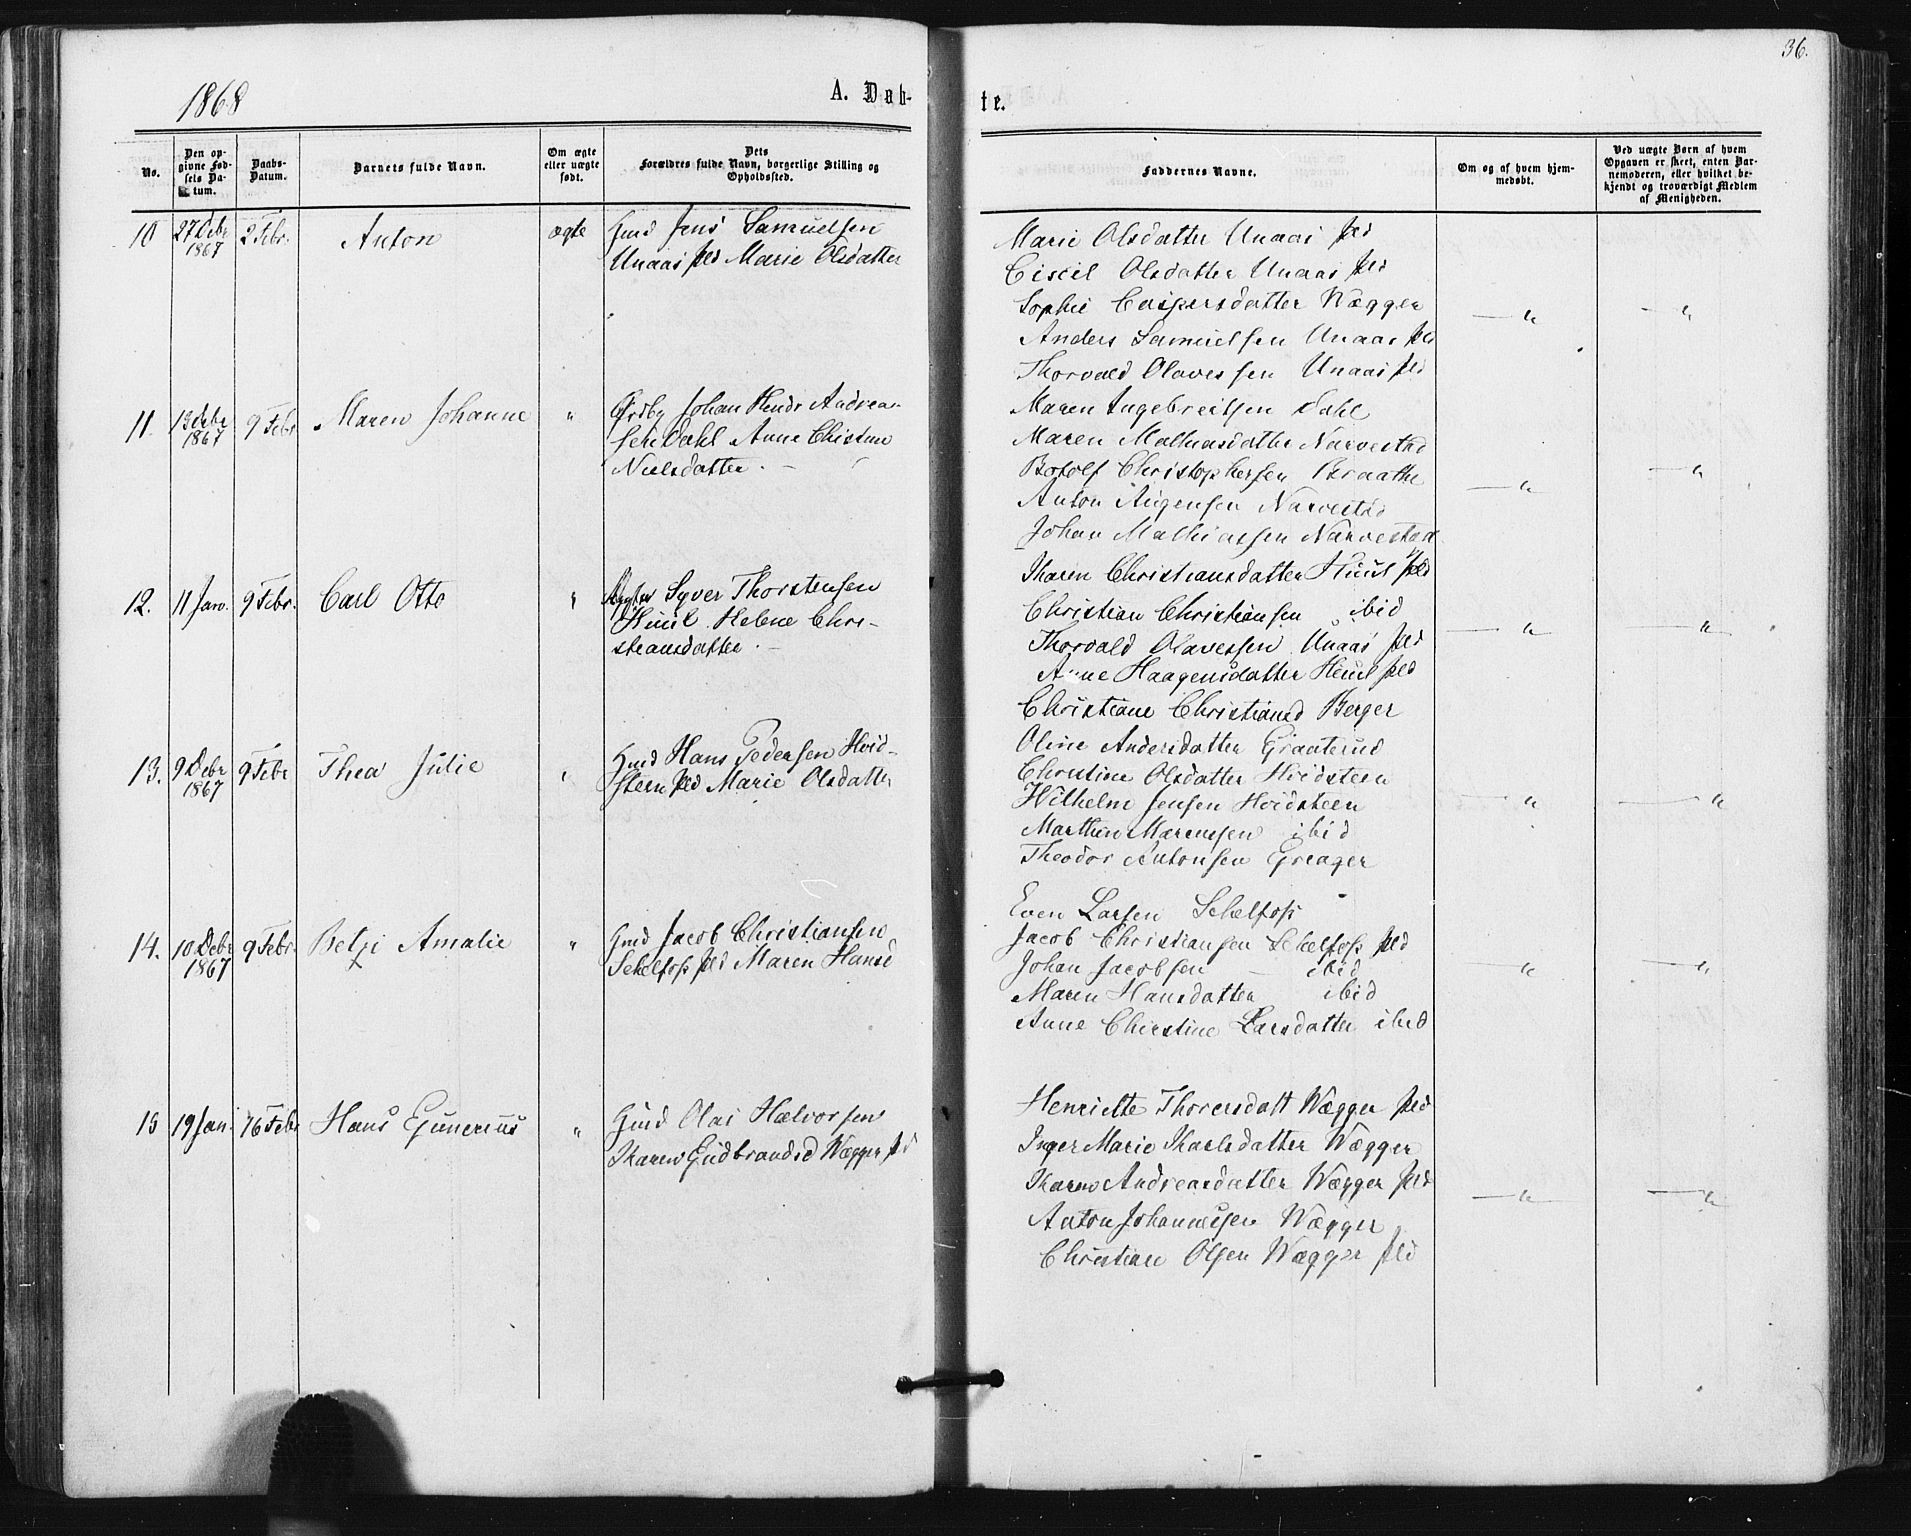 36.
1868
A. Døb-
te.
No.
Den op-
givne Fød-
sels Da-
tum.
Daabs-
Datum.
Barnets fulde Navn.
Om ægte
eller uægte
født.
Dets
Forældres fulde Navn, borgerlige Stilling og
Opholdssted.
Faddernes Navne.
Om og af hvem hjem-
medøbt.
Ved uægte Børn af hvem
Opgaven er skeet, enten Bar-
nemoderen, eller hvilket be-
kjendt og troværdigt Medlem
af Menigheden.
10 27 Debr 1867 2 Febr. Anton ægte
Gmd Jens Samuelsen
Unaas pld Marie Olsdatter
Marie Olsdatter Unaas pld
Cicil Olsdatter Unaas pld
Sophie Caspersdatter Wægger
Anders Samuelsen Unaas pld
Thorvald Olavessen Unaas pld
11. 13 Debr 1867 9 Febr Maren Johanne "
Johan Hendr Andrea-
sen Dahl Anne Christine
Nielsdatter. -
Maren Ingebreitsen Dahl
Maren Mathiasdatter Narvestad
Botolf Christophersen Braathe
Anton Narvestad
Johan Mathiassen Narvestad
12. 11 Jan. 9 Febr. Carl Otto "
Syver Thorstensen
Huul Helene Chri-
stiansdatter. -
Karen Christiansdatter Huul pld
Christian Christiansen ibid
Thorvald Olavessen Unaas pld
Anne Haagensdatter Huul pld
Christiane Christiansd Berger
13. 9 Debr 1867 9 Febr Thea Julie "
Gmd Hans Pedersen Hvid-
steen pld Marie Olsdatter
Oline Andersdatter Graaterud
Christine Olsdatter Hvidsteen
Wilhelm Jensen Hvidsteen
Marthin Marensen ibid
Theodor Antonsen Greager
14. 10 Debr 1867 9 Febr. Betzi Amalie "
Gmd Jacob Christiansen
Schelfoss pld Maren Hansd
Even Larsen Schelfoss
Jacob Christiansen Schelfoss pld
Johan Jacobsen - ibid
Maren Hansdatter ibid
Anne Christine Larsdatter ibid
15 19 Jan. 16 Febr Hans Gunerius "
Gmd Olai Halvorsen
Karen Gudbrandsd Wægger pld
Henriette Thoresdatt Wægger pld
Inger Marie Karlsdatter Wægger
Karen Andreasdatter Wægger pld
Anton Johannesen Wægger
Christian Olsen Wægger pld